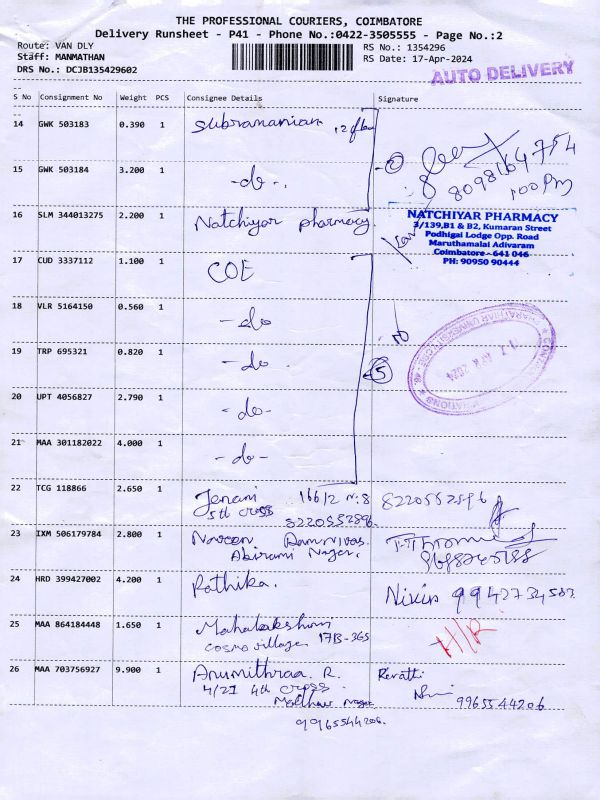 THE PROFESSIONAL COURIERS, COIMBATORE
Delivery Runsheet - P41 - Phone No.:0422-3505555 - Page No.:2
Route: VAN DLY
RS No.: 1354296
Staff: MANMATHAN
RS Date: 17-Apr-2024
DRS No.: DCJB135429602
AUTO DELIVERY
S No Consignment No Weight PCS Consignee Details Signature
14 GWK 503183 0.390 1 Subramanian
15 GWK 503184 3.200 1 -do-
8098164754
100 pm
16 SLM 344013275 2.200 1 Natchiyar pharmacy
NATCHIYAR PHARMACY
3/139,B1 & B2, Kumaran Street
Podhigai Lodge Opp. Road
Maruthamalai Adivaram
Coimbatore - 641 046
PH: 90950 90444
17 CUD 3337112 1.100 1 COE
18 VLR 5164150 0.560 1 -do
19 TRP 695321 0.820 1 -do- 5
20 UPT 4056827 2.790 1 -do-
21 MAA 301182022 4.000 1 -do-
22 TCG 118866 2.650 1 Jenani 166/2 8220552896
5th cross
8220552896
23 IXM 506179784 2.800 1 Naveen
Abirami Nagar.
24 HRD 399427002 4.200 1 Rathika.
25 MAA 864184448 1.650 1 Mahalakshmi
cosmo village 17B-365
26 MAA 703756927 9.900 1 Arumithraa. R. Revathi
4/21 4th cross 9965544206
Nagar
9965544206.